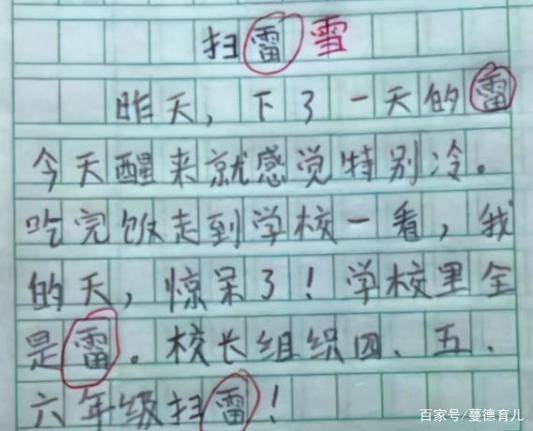 扫雷雪
昨天，下了一天的雷
今天醒来就感觉特别冷。
吃完饭走到学校一看，我
的天，惊呆了！学校里全
是雷。校长组织四、五、
六年级扫雷！
百家号/蔓德育儿